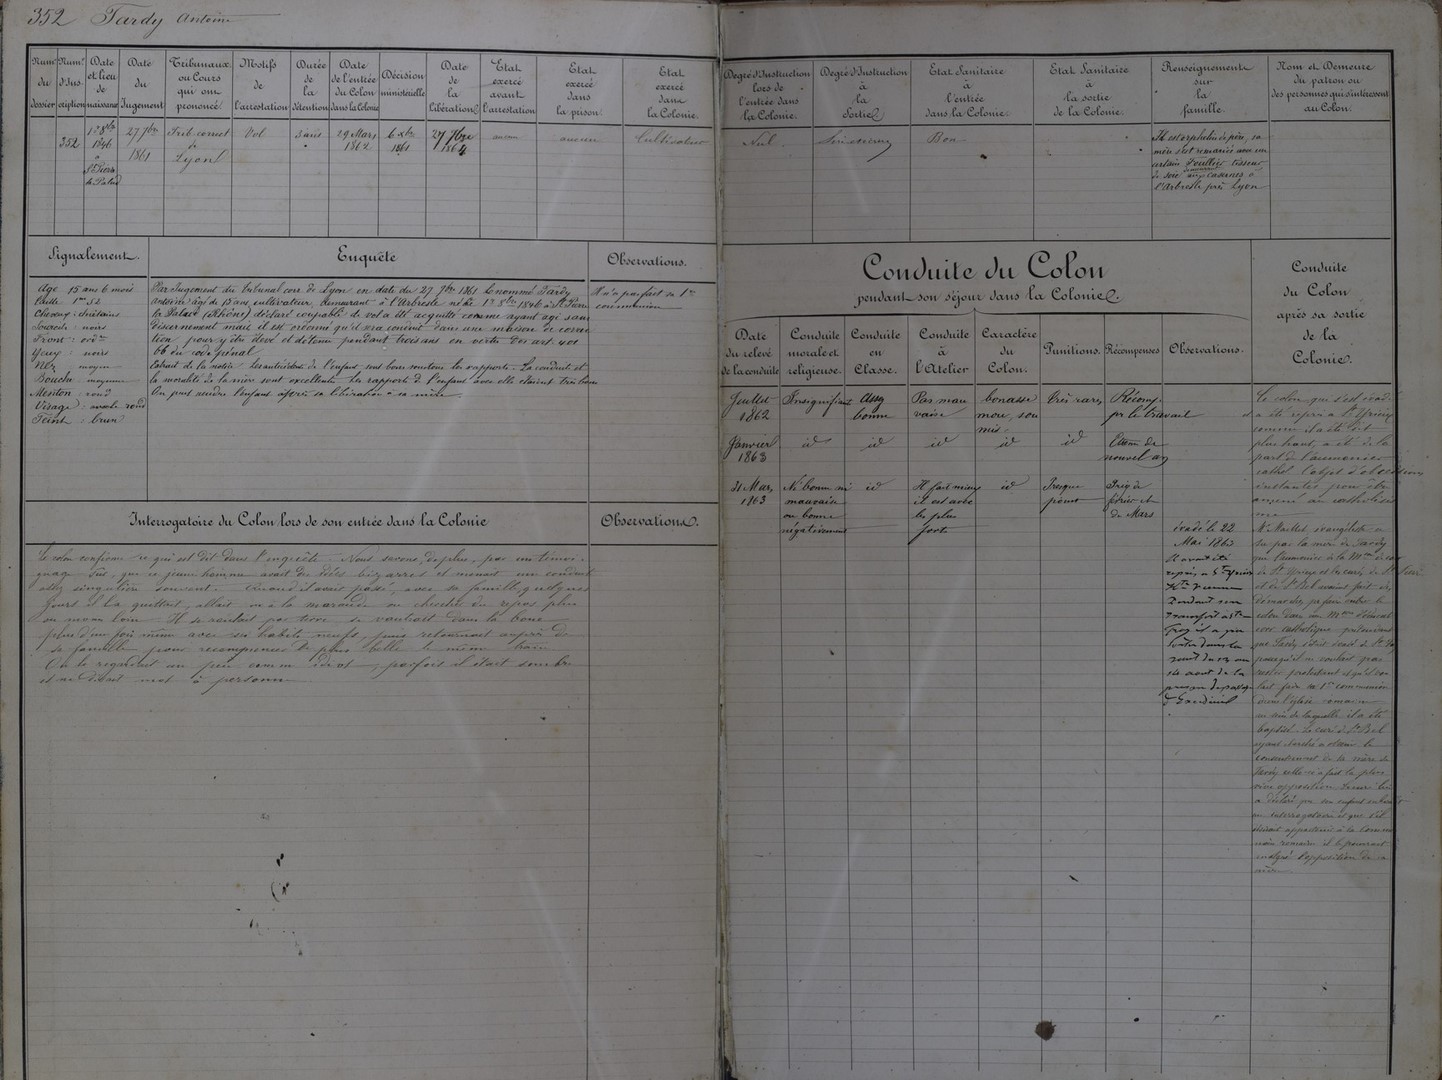 352 Tardy Antoine
Num.º du dossier
Num.º d'Inscription
Date et lieu de naissance
Date du Jugement
Tribunaux ou Cours qui ont prononcé
Motifs de l'arrestation
Durée de la détention
Date de l'entrée du Colon dans la Colonie
Décision ministérielle
Date de la Libération
Etat exercé avant l'arrestation
Etat exercé dans la prison
Etat exercé dans la Colonie.
352
1er 8bre 1846 à St Pierre la Palud
27 7bre 1861
Trib correct de Lyon
Vol
3 ans
29 Mars 1862
6 Xbre 1861
27 7bre 1864
aucun
aucun
Cultivateur
Degré d'Instruction lors de l'entrée dans la Colonie.
Degré d'Instruction à la Sortie
Etat Sanitaire à l'entrée dans la Colonie.
Etat Sanitaire à la sortie de la Colonie.
Renseignements sur la famille.
Nom et Demeure du patron ou des personnes qui s'intéressent au Colon.
Nul
Bon
Il est orphelin de père, sa
mère s'est remariée avec un
certain tisseur
de soie demeurant aux casernes à
l'Arbresle près Lyon
Signalement.
Age 15 ans 6 mois
Taille 1m 52
Cheveux : châtains
Sourcils : noirs
Front : ordre
Yeux : noirs
Nez moyen
Bouche : moyenne
Menton : rond
Visage : ovale rond
Teint : brun
Enquête
Par Jugement du tribunal corr de Lyon en date du 27 7bre 1861 le nommé Tardy
Antoine âgé de 15 ans, cultivateur, demeurant à l'Arbresle né le 1er 8bre 1846 à St Pierre
la Palud (Rhône) déclaré coupable de vol a été acquitté comme ayant agi sans
discernement mais il est ordonné qu'il sera conduit dans une maison de correc
tion pour y être élevé et détenu pendant trois ans en vertu des art. 401
66 du code pénal
Extrait de la notice les antécédents de l'enfant sont bons sous tous les rapports. La conduite et
la moralité de la mère sont excellentes les rapports de l'enfant avec elle étaient très bons
On peut rendre l'enfant après sa libération à sa mère
Observations.
Il n'a pas fait sa 1re
communion
Interrogatoire du Colon lors de son entrée dans la Colonie
Observations.
Le colon confirme ce qui est dit dans l'enquête. Nous savons, de plus, par un témoi-
gnage sûr, que ce jeune homme avait des idées bizarres et menait une conduite
assez singulière souvent. Quand il avait passé, avec sa famille, quelques
jours il la quittait, allait ou à la maraude ou chercher du repos plus
ou moins loin. Il se roulait par terre, se vautrait dans la boue
plus d'une fois même avec ses habits neufs, puis retournait auprès de
sa famille pour recommencer de plus belle le même train
On le regardait un peu comme idiot, parfois il était sombre
et ne disait mot à personne
Conduite du Colon
pendant son séjour dans la Colonie.
Date du relevé de la conduite
Conduite morale et religieuse.
Conduite en Classe.
Conduite à l'Atelier
Caractère du Colon.
Punitions.
Récompenses
Observations.
Juillet 1862
Insignifiant
Assez bonne
Pas mau vaise
bonasse mou, sou mis.
très rares
Récomp. pr le travail
Janvier 1863
id
id
id
id
id
nouvel an
31 Mars 1863
Ni bonne ni mauvaise ou bonne négativement
id
Il fait mieux il est avec les plus forts
id
Presque point
Prix de février et de Mars
évadé le 22
Mai 1863
Il avait été
repris à St Yrieix
Pendant son
transfert à Ste
Foy il a pu
s'évader dans la
nuit du 13 au
14 août de la
prison de passage
de Gardineil
Conduite du Colon après sa sortie de la Colonie.
Le colon qui s'est évadé
et a été repris à St Yrieix
comme il a été dit
plus haut, a été de la
part de l'aumônier
cathol. l'objet d'obsessions
instantes pour être
amené au catholicis
me
Mr Maillet évangéliste a
su par la mère de Tardy
que l'aumônier à la Mon de cor
de St Yrieix et les curés de St Pierre
et de St Bel avaient fait des
démarches, pr faire entrer le
colon dans une Mon d'éducat
corr catholique prétendant
que Tardy s'était évadé de Ste Foy
parcequ'il ne voulait pas
rester protestant et qu'il vou
lait faire sa 1re communion
dans l'église romaine
au sein de laquelle il a été
baptisé. Le curé de St Bel
ayant cherché à obtenir le
consentement de la mère de
Tardy celle-ci a fait la plus
vive opposition.
malgré l'opposition de sa
mère